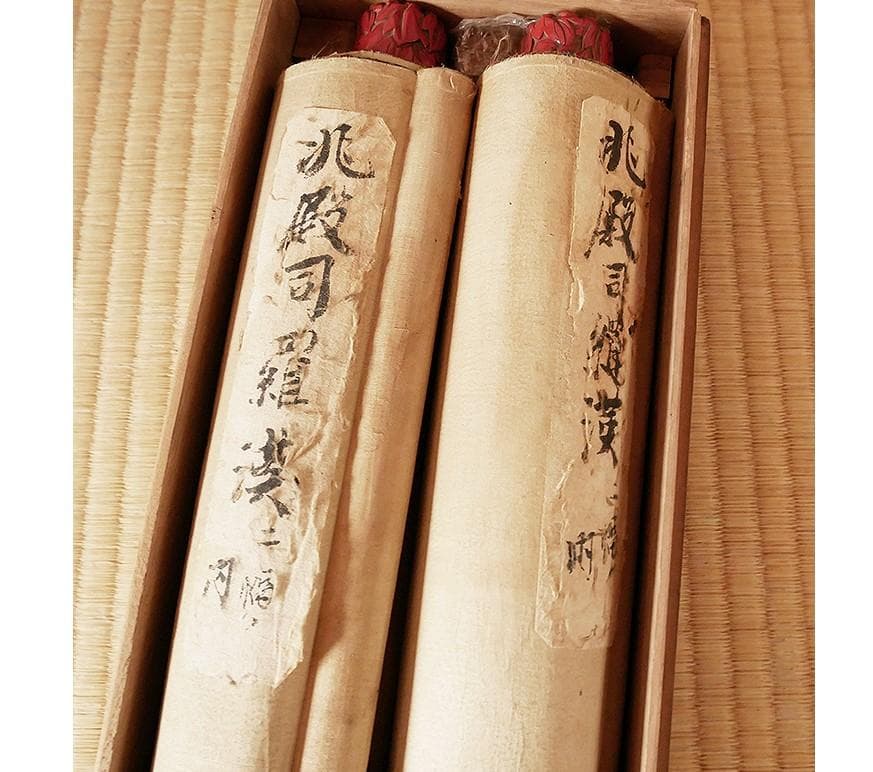 兆殿司羅漢二幅
内
兆殿司羅漢二幅
内